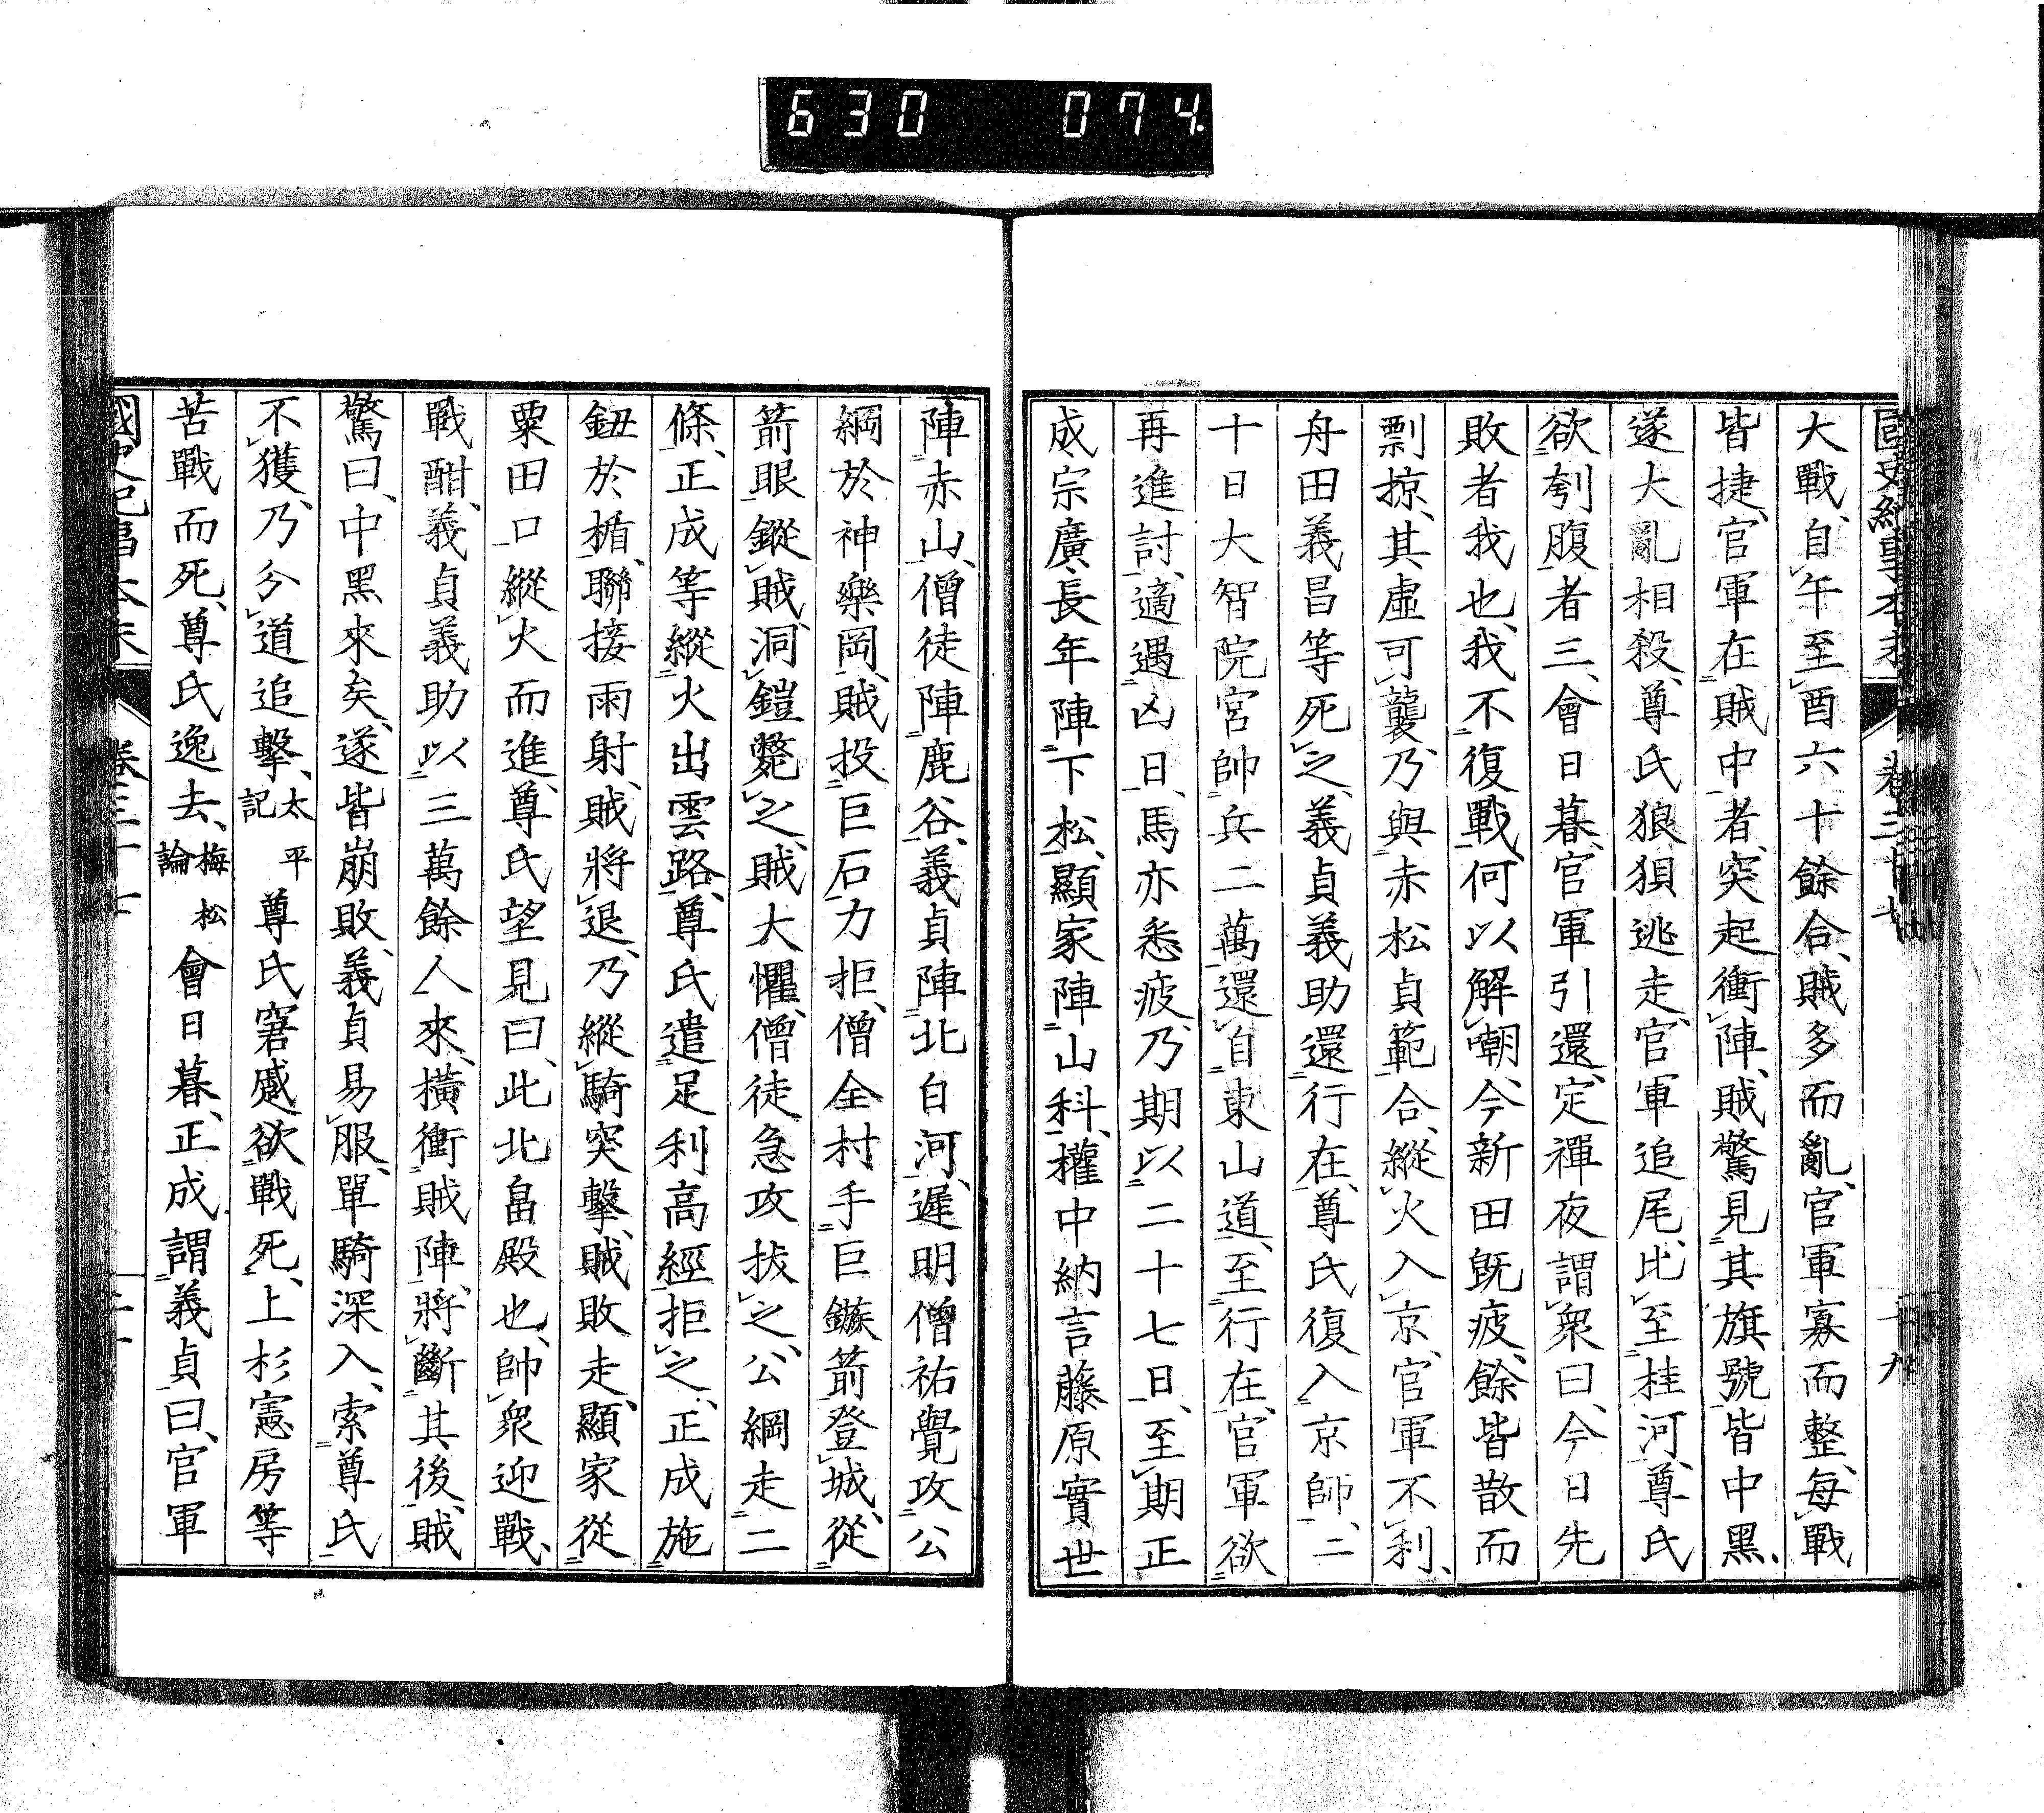 630 074
大戰、自午至酉六十餘合、賊多而亂、官軍寡而整、每戰
皆捷、官軍在賊中者、突起衝陣、賊驚見其旗號皆中黑、
遂大亂相殺、尊氏狼狽逃走、官軍追尾、比至桂河、尊氏
欲刳腹者三、會日暮、官軍引還、定禪夜謂衆曰、今日先
敗者我也、我不復戰、何以解嘲、今新田既疲、餘皆散而
剽掠、其虛可襲、乃與赤松貞範合、縱火入京、官軍不利、
舟田義昌等死之、義貞義助還行在、尊氏復入京師、二
十日大智院宮帥兵二萬還自東山道、至行在、官軍欲
再進討、適遇凶日、馬亦悉疲、乃期以二十七日、至期正
成宗廣長年陣下松、顯家陣山科、權中納言藤原實世
陣赤山、僧徒陣鹿谷、義貞陣北白河、遲明僧祐覺攻公
綱於神樂岡、賊投巨石力拒、僧全村手巨鏃箭登城、從
箭眼鏦賊、洞鎧斃之、賊大懼、僧徒急攻拔之、公綱走二
條、正成等縱火出雲路、尊氏遣足利高經拒之、正成施
鈕於楯、聯接雨射、賊將退、乃縱騎突擊、賊敗走、顯家從
粟田口縱火而進、尊氏望見曰、此北畠殿也、帥衆迎戰、
戰酣、義貞義助以三萬餘人來、橫衝賊陣、將斷其後、賊
驚曰、中黑來矣、遂皆崩敗、義貞易服、單騎深入、索尊氏
不獲、乃分道追擊、太平記 尊氏窘蹙欲戰死、上杉憲房等
苦戰而死、尊氏逸去、梅松論 會日暮、正成謂義貞曰、官軍